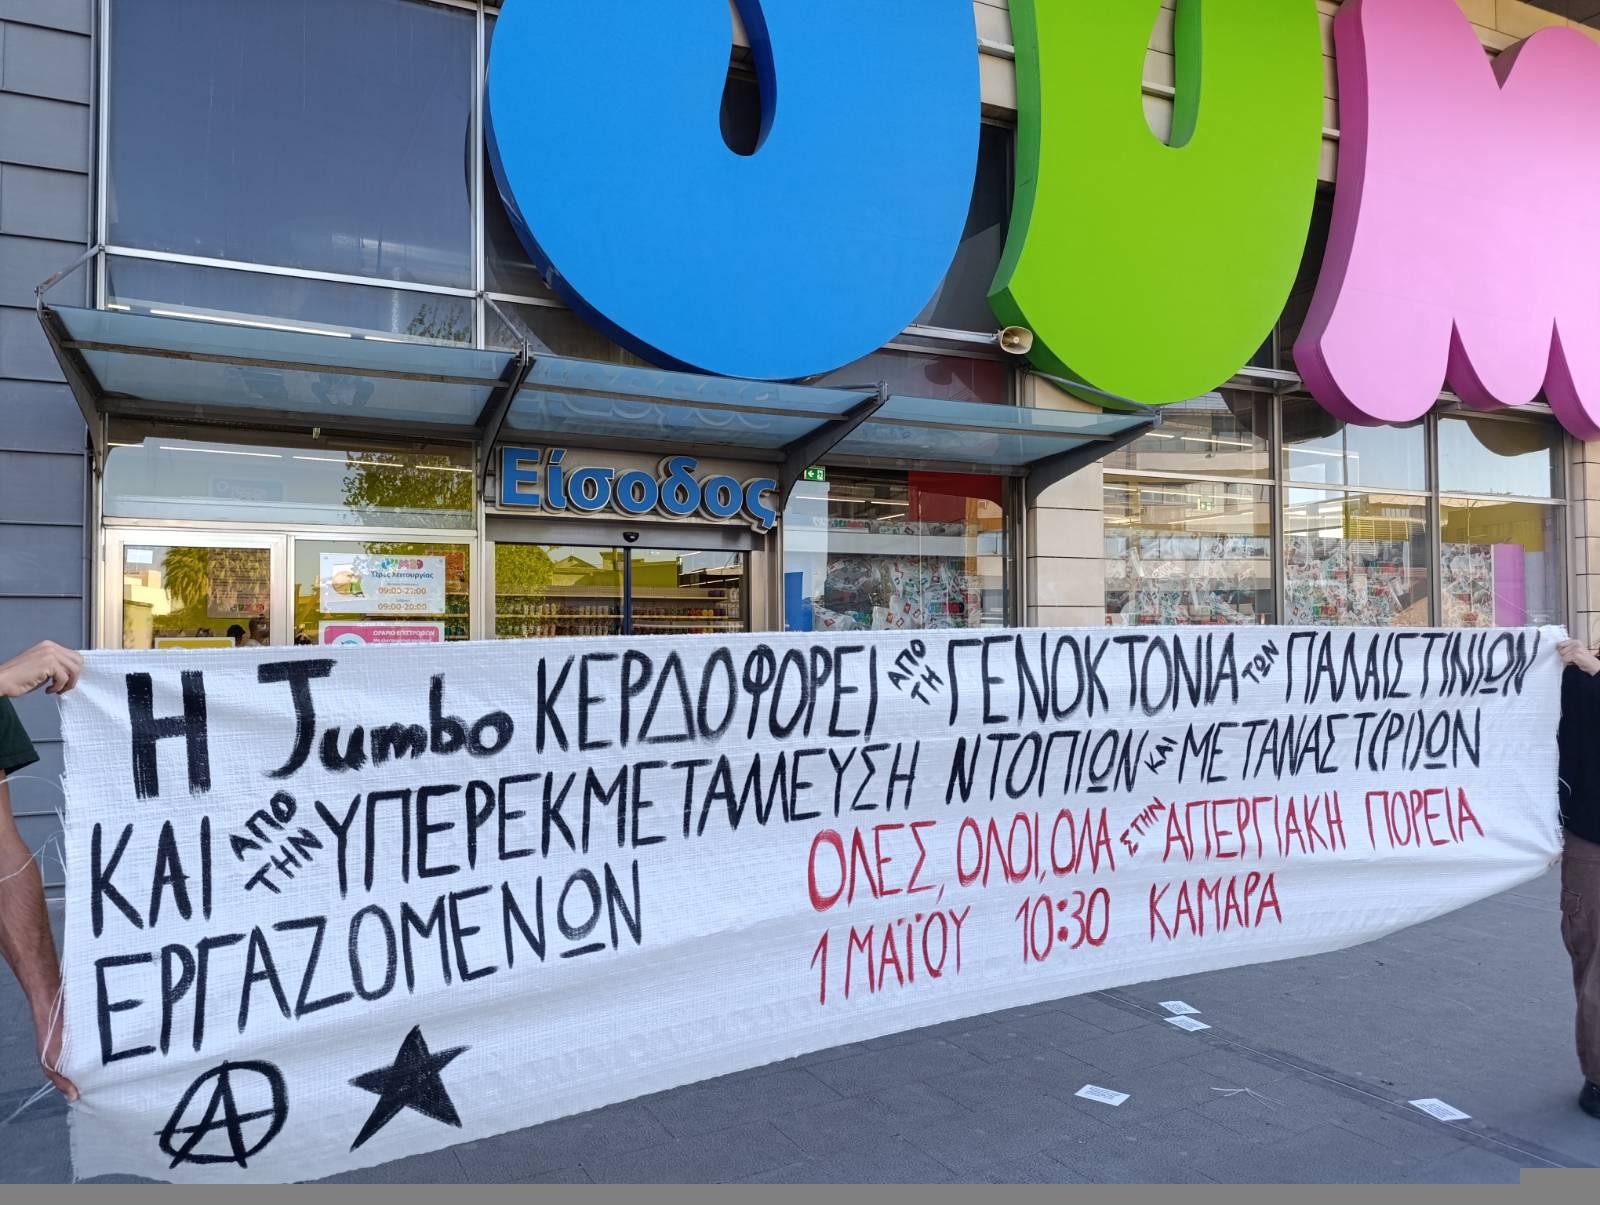 JUM
Είσοδος
JUMBO
Ώρες λειτουργίας
09:00-21:00
09:00-20:00
ΩΡΑΡΙΟ ΕΠΙΣΤΡΟΦΩΝ
Η Jumbo ΚΕΡΔΟΦΟΡΕΙ ΑΠΟ ΤΗ ΓΕΝΟΚΤΟΝΙΑ ΤΩΝ ΠΑΛΑΙΣΤΙΝΙΩΝ
ΚΑΙ ΑΠΟ ΤΗΝ ΥΠΕΡΕΚΜΕΤΑΛΛΕΥΣΗ ΝΤΟΠΙΩΝ ΚΑΙ ΜΕΤΑΝΑΣΤ(ΡΙ)ΩΝ
ΕΡΓΑΖΟΜΕΝΩΝ
ΟΛΕΣ, ΟΛΟΙ, ΟΛΑ ΣΤΗΝ ΑΠΕΡΓΙΑΚΗ ΠΟΡΕΙΑ
1 ΜΑΪΟΥ 10:30 ΚΑΜΑΡΑ